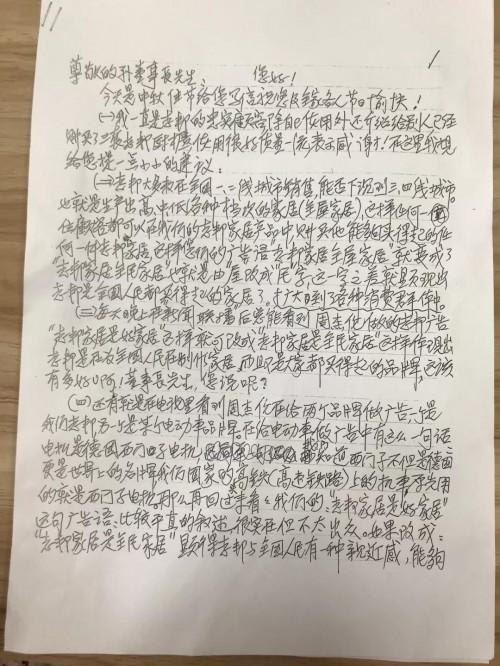 1
尊敬的孙董事长先生、 您好!
今天是中秋佳节给您写信祝您及全家各人节日愉快!
(一)我一直是志邦的忠实顾客除自己使用外还介绍给别人已经
购买了三套志邦橱柜使用很好质量一流表示感谢!在这里我想
给您提一点小小的建议:
(二)志邦大多数在全国一、二线城市销售,能否下沉到三、四线城市。
也就是生产出高、中、低各种档次的家居(全屋家居),这样任何一
住廠都可以在我们的志邦家居产品中
何一件志邦家居。这样您们的广告语"志邦家居全屋家居"就变成了
"志邦家居全民家居"也就是由"屋"改成"民"字,这一字之差就显现出
志邦是全国人民都买得起的家居了。扩大到了各种消费者群体中。
(三)每天晚上新闻联播后总能看到周杰伦做的志邦广告
"志邦家居是好家居"这样就可改成"志邦家居是全民家居"这样体现出
志邦是在为全国人民在制作家居而且是大家都买得起的品牌,应该
有多好啊!董事长先生,您说呢?
(四)还有就是在电视里看到周杰伦在给两个品牌做广告一个是
我们志邦另一个是某个电动车品牌。在给电动车做广告中有这么一句话
电机是德国西门子电机 知道西门子不但是德国
更是世界上的名牌我们国家的高铁(高速铁路)上的机车原先用
的就是西门子电机。那么再回过来看《我们的:"志邦家居是好家居"
这句广告语:比较平直的叙述。很实在但不太出众。如果改成:
"志邦家居是全民家居"显得志邦与全国人民有一种亲近感,能够